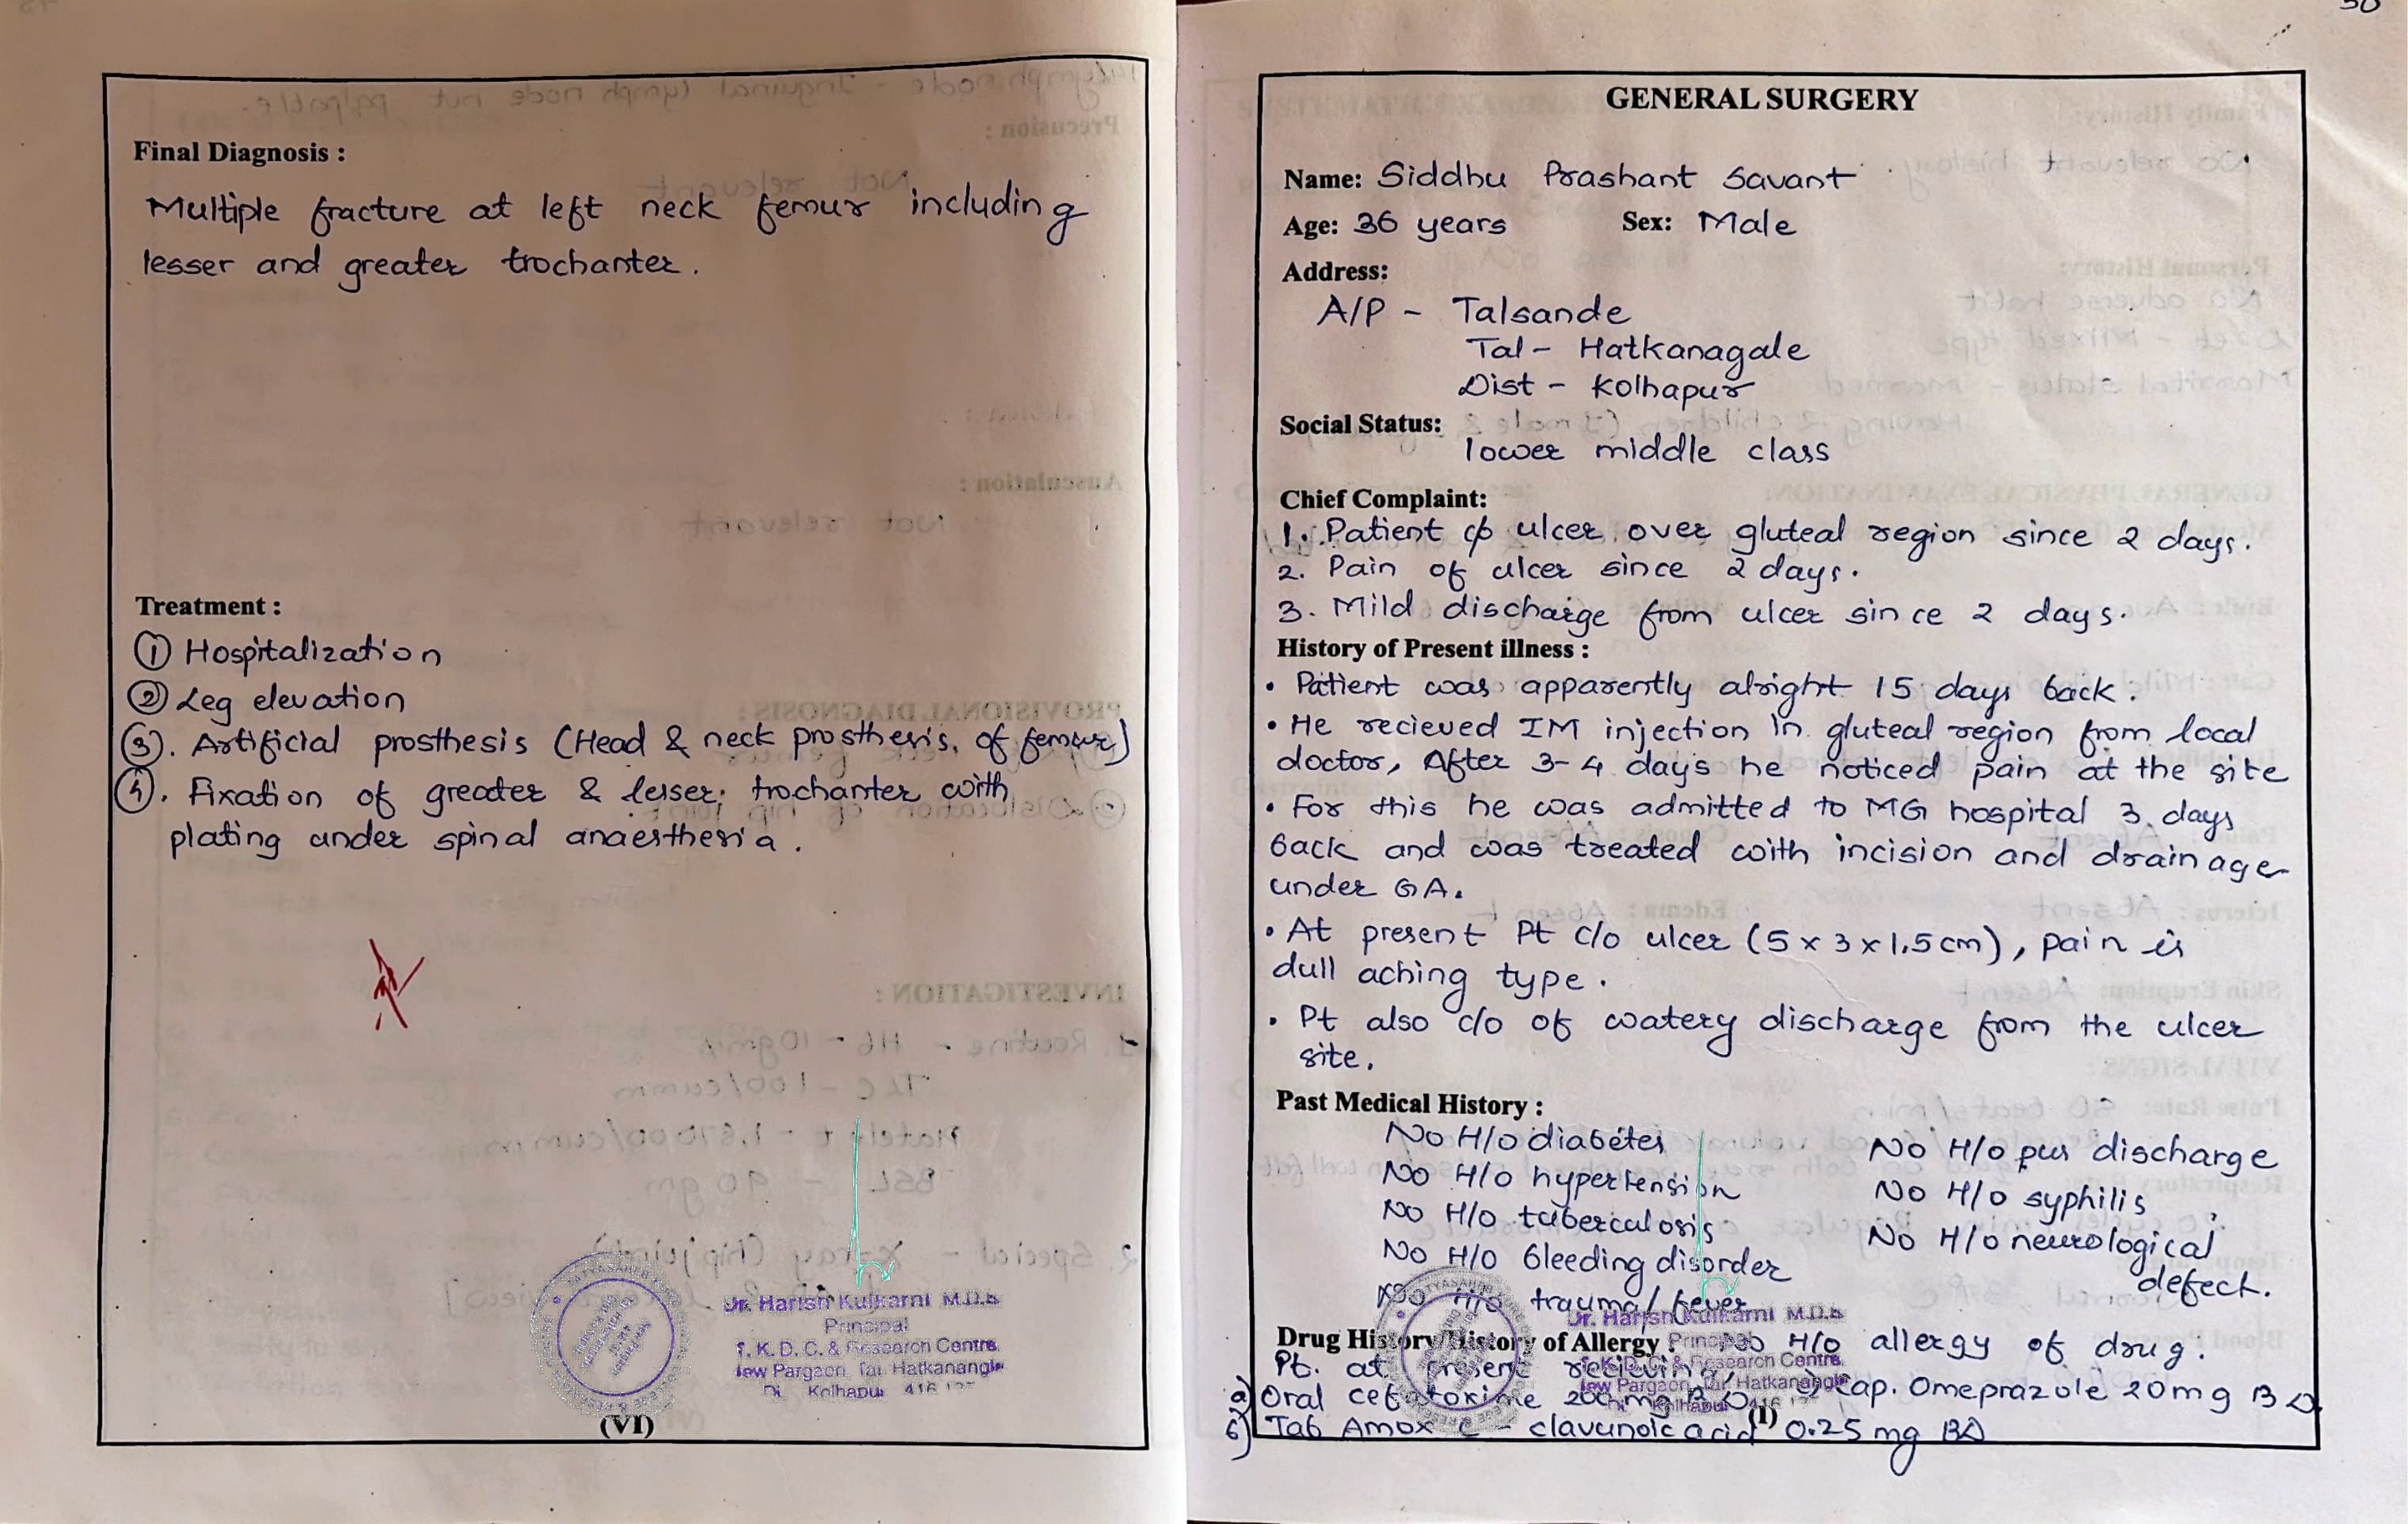 Final Diagnosis :
Multiple fracture at left neck femur including
lesser and greater trochanter.
Treatment :
① Hospitalization
② Leg elevation
③. Artificial prosthesis (Head & neck prosthesis, of femur)
④. Fixation of greater & lesser; trochanter with
plating under spinal anaesthesia.
Dr. Harish Kulkarni M.D.S
Principal
T. K. D. C. & Research Centre
New Pargaon, Tal. Hatkanangle
Di. Kolhapur 416
(VI)
30
GENERAL SURGERY
Name: Siddhu Prashant Savant
Age: 36 years Sex: Male
Address:
A/P - Talsande
Tal - Hatkanagale
Dist - Kolhapur
Social Status:
lower middle class
Chief Complaint:
1. Patient c/o ulcer over gluteal region since 2 days.
2. Pain of ulcer since 2 days.
3. Mild discharge from ulcer since 2 days.
History of Present illness :
• Patient was apparently alright 15 days back.
• He recieved IM injection in gluteal region from local
doctor, After 3-4 days he noticed pain at the site
• For this he was admitted to MG hospital 3 days
back and was treated with incision and drainage
under GA.
• At present Pt c/o ulcer (5 x 3 x 1.5 cm), pain is
dull aching type.
• Pt also c/o of watery discharge from the ulcer
site.
Past Medical History :
No H/o diabetes No H/o pus discharge
No H/o hypertension No H/o syphilis
No H/o tuberculosis
No H/o neurological
No H/o bleeding disorder defect.
No H/o trauma/ fever
Dr. Harish Kulkarni M.D.S
Drug History/History of Allergy : No H/o allergy of drug.
Principal
Pt. at present recieving
& Research Centre
New Pargaon, Tal. Hatkanangle
a) Oral cefotoxime 200 mg BD c) Cap. Omeprazole 20mg BD
Kolhapur 416
(I)
b) Tab Amox - clavunoic acid 0.25 mg BD